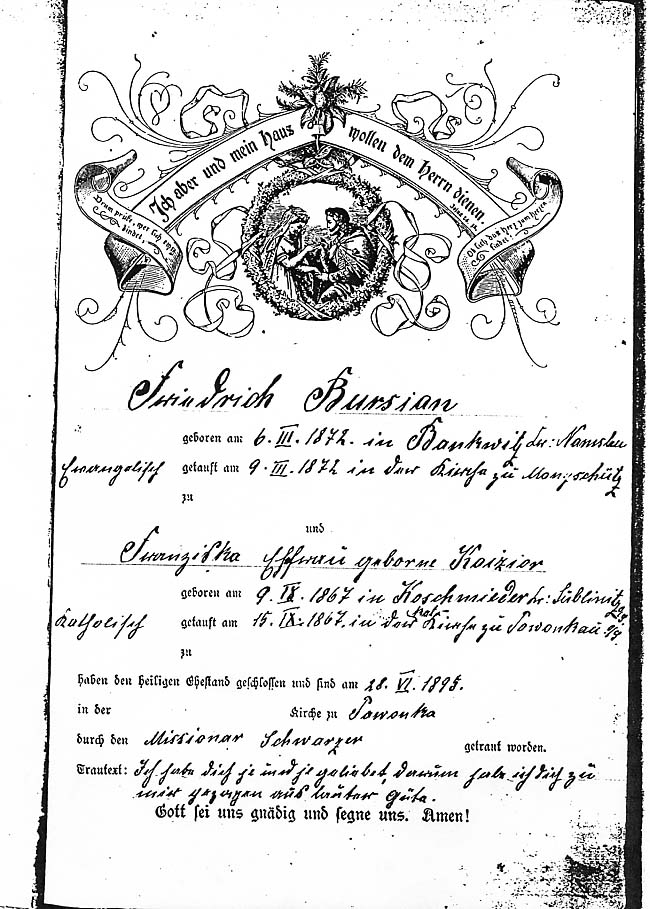 Ich aber und mein Haus wollen dem Herrn dienen.
Drum prüfe, wer sich ewig bindet,
Ob sich das Herz zum Herzen findet.
Friedrich Bursian
geboren am 6. III. 1872. in Bankwitz Kr: Namslau
Ewangelisch getauft am 9. III. 1872 in der Kirche zu
zu
und
Franziska Ehfrau geborne Koizior
geboren am 9. IX. 1867 in Koschmieder Kr: Lublinitz
Katholisch getauft am 15. IX. 1867. in der Kath. Kirche zu Powonkau
zu
haben den heiligen Ehestand geschlossen und sind am 28. VI. 1895.
in der Kirche zu Powonka
durch den Missionar Schwarzer getraut worden.
Trautext: Ich habe dich je und je geliebet, darum habe ich dich zu
mir gezogen aus lauter Güte.
Gott sei uns gnädig und segne uns. Amen!